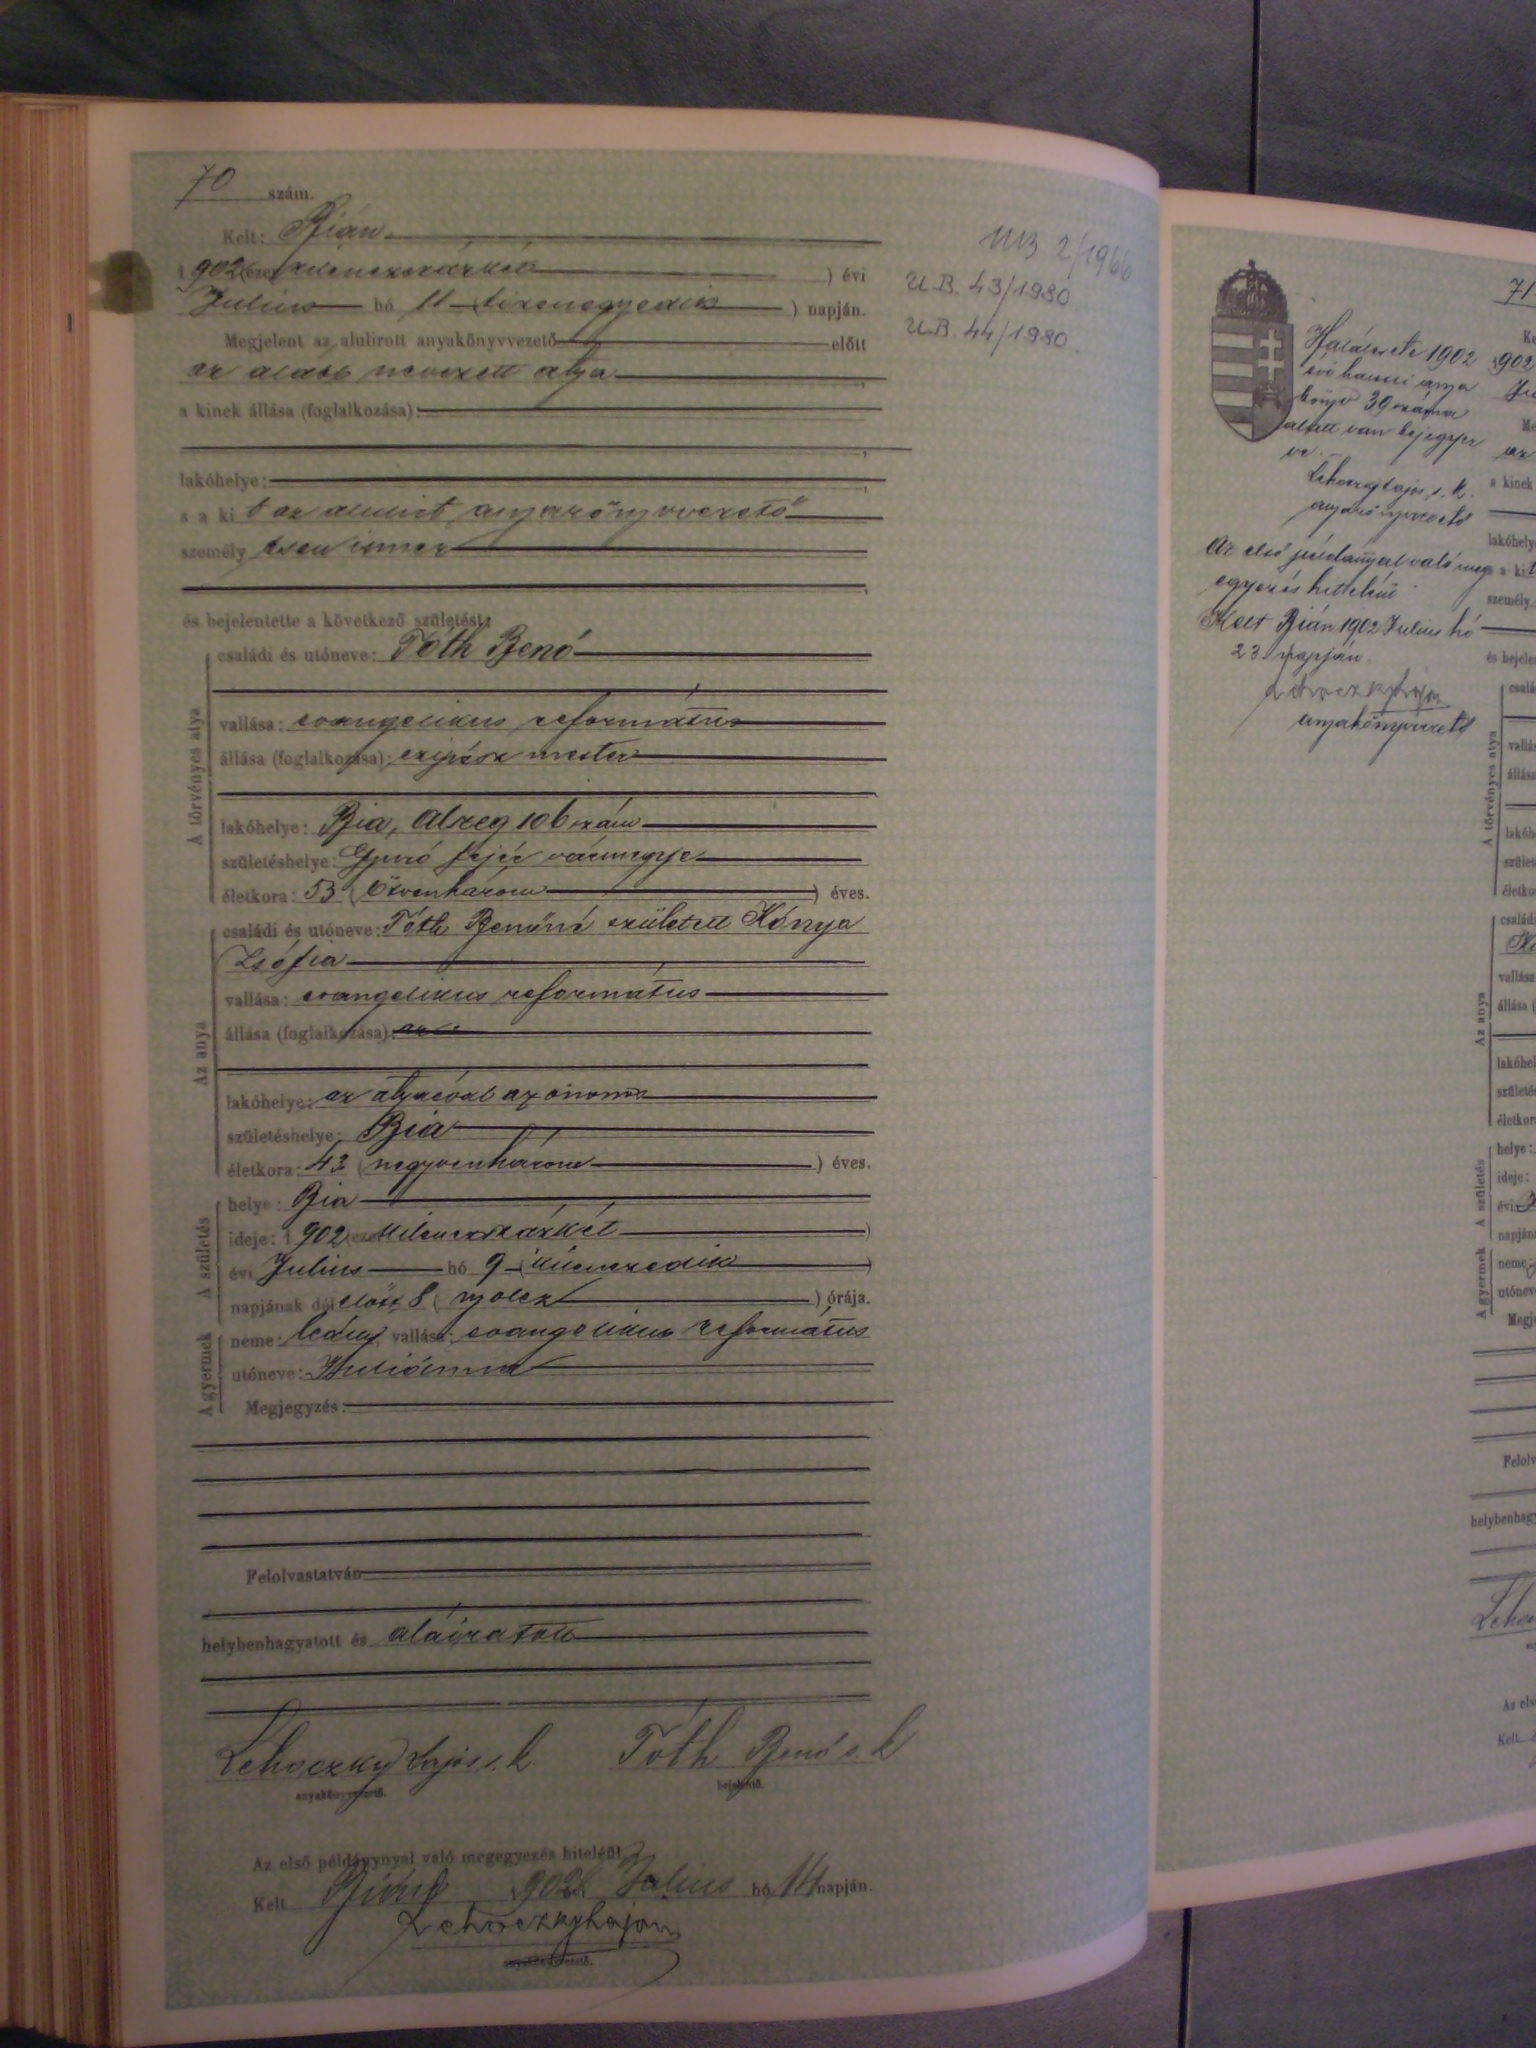 70 szám.
Kelt: Bián
1902 (ezer kilencszázkettő) évi
Julius hó 11 (tizenegyedik) napján.
Megjelent az alulirott anyakönyvvezető előtt
az alább nevezett atya
a kinek állása (foglalkozása):
lakóhelye:
s a ki t az alulirt anyakönyvvezető
személyesen ismer
és bejelentette a következő születést:
A törvényes atya
családi és utóneve: Tóth Benő
vallása: evangelikus református
állása (foglalkozása): czipész mester
lakóhelye: Bia, Alszeg 106 szám
születéshelye: Gyuró fejér vármegye
életkora: 53 (ötvenhárom) éves.
Az anya
családi és utóneve: Tóth Benőné született Kónya
Zsófia
vallása: evangelikus református
állása (foglalkozása):
lakóhelye: az atyáéval azonos
születéshelye: Bia
életkora: 43 (negyvenhárom) éves.
A születés
helye: Bia
ideje: 1902 (ezer kilenczszázkét)
évi Julius hó 9 (kilenczedik)
napjának délelőtt 8 (nyolcz) órája.
A gyermek
neme: leány, vallása: evangelikus református
utóneve: Juliánna
Megjegyzés:
Felolvastatván
helybenhagyatott és aláiratott
Lehoczky Lajos s. k. Tóth Benő s. k
anyakönyvvezető. bejelentő.
Az első példánynyal való megegyezés hiteléül.
Kelt Bián 1902 Julius hó 14 napján.
Lehoczky Lajos
anyakönyvvezető.
MB 2/1966
U.B. 43/1980
U.B. 44/1980.
71
Halálesete 1902
évi hanti anya
könyv 39 száma
alatt van bejegyez
ve.
Lehoczky Lajos s. k.
anyakönyvvezető
Az első példánnyal való meg
egyezés hiteléül
Kelt Bián 1902 Julius hó
23 napján.
Lehoczky Lajos
anyakönyvvezető
902
Ju
az
a kinek
lakóhelye
a ki
személy
és bejelen
A törvényes atya
család
vallás
állása
lakóh
szület
életko
Az anya
családi
vallása
állása (
lakóhel
születés
életkor
A születés
helye:
ideje:
évi
napján
A gyermek
neme
utónev
Megj
Felolv
helybenhagy
Leho
Az els
Kelt